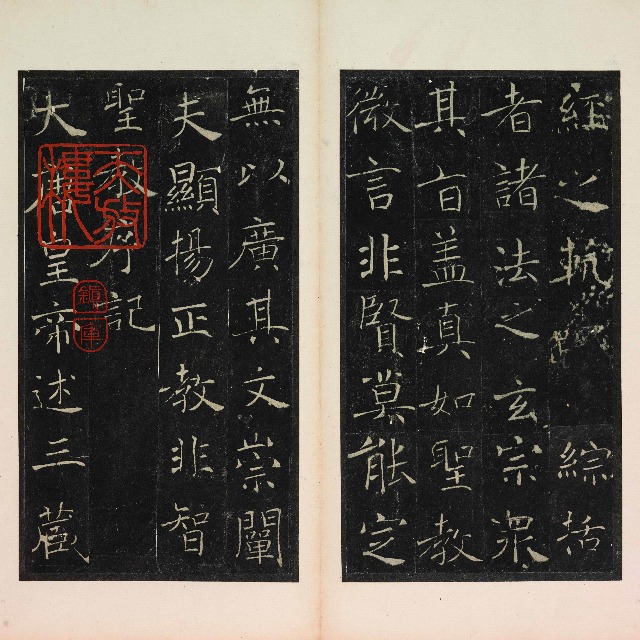 大唐皇帝述三藏
聖教序記
夫顯揚正教非智
無以廣其文崇闡
微言非賢莫能定
其旨盖真如聖教
者諸法之玄宗眾
經之軌 綜括